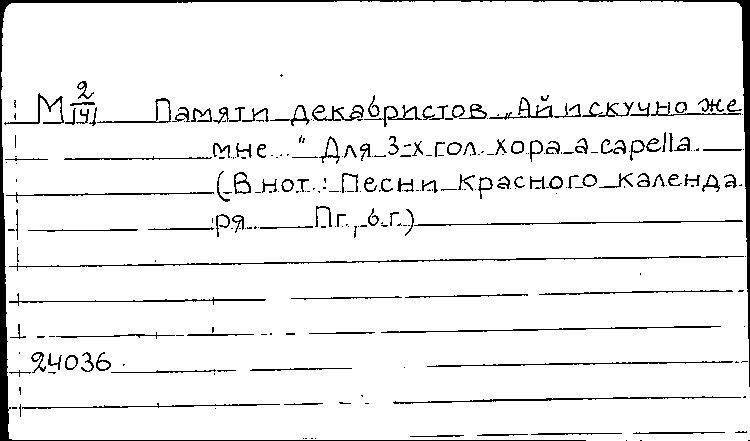 М 2/141 Памяти декабристов „Ай и скучно же
мне..." Для 3-х гол. хора a capella.
(В нот.: Песни Красного календа
ря Пг., б.г.)
24036.